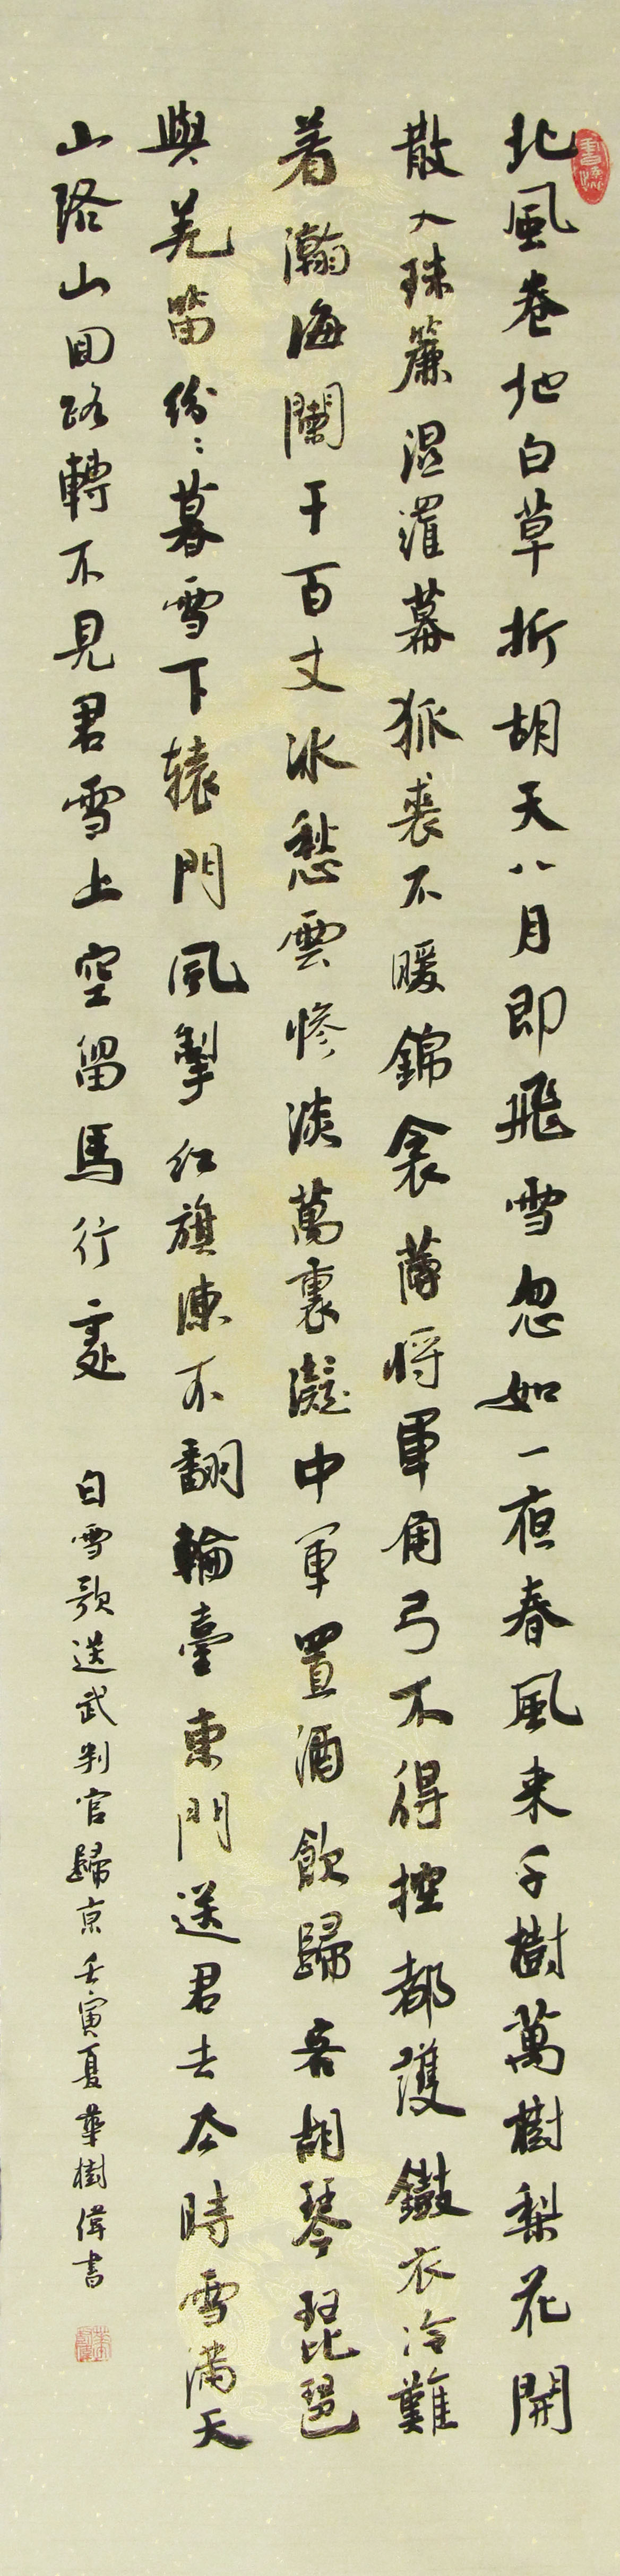 北風卷地白草折胡天八月即飛雪忽如一夜春風来千樹萬樹梨花開
散入珠簾濕羅幕狐裘不暖錦衾薄将軍角弓不得控都護鐵衣冷難
着瀚海闌干百丈冰愁雲慘淡萬裏凝中軍置酒飲歸客胡琴琵琶
與羌笛紛〻暮雪下轅門風掣红旗凍不翻輪臺東門送君去去時雪滿天
山路山回路轉不見君雪上空留馬行處
白雪歌送武判官歸京壬寅夏華樹偉書